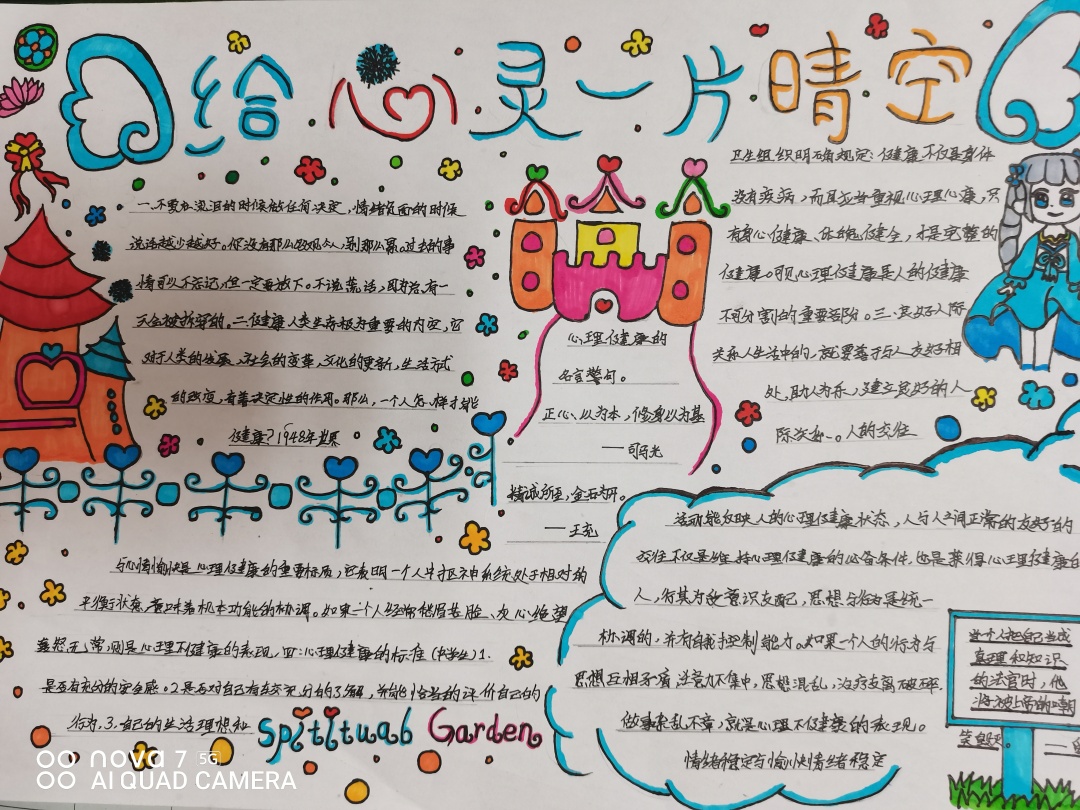 给心灵一片晴空
一.不要在流泪的时候做任何决定,情绪负面的时候
说话越少越好。你没有那么多观众,别那么累。过去的事
情可以不忘记,但一定要放下。不说谎话,因为总有一
天会被拆穿的。二.健康人类生存极为重要的内容,它
对于人类的发展、社会的变革、文化的更新,生活方式
的改变,有着决定性的作用。那么,一个人怎样才能
健康?1948年世界
卫生组织明确规定:健康不仅是身体
没有疾病,而且应当重视心理健康,只
有身心健康、体魄健全,才是完整的
健康。可见心理健康是人的健康
不可分割的重要部分。三.良好人际
关系人生活中的,就要善于与人友好相
处,助人为乐,建立良好的人
际关系。人的交往
心理健康的
名言警句。
正心以为本,修身以为基
——司马光
精诚所至,金石为开。
——王充
活动能反映人的心理健康状态,人与人之间正常的友好的
交往不仅是维持心理健康的必备条件,也是获得心理健康的
人,行其为受意识支配,思想与行为是统一
协调的,并有自我控制能力。如果一个人的行为与
思想互相矛盾,注意力不集中,思想混乱,
做事杂乱不章,就是心理不健康的表现。
情绪稳定与愉快情绪稳定
与心情愉快是心理健康的重要标志,它表明一个人中枢神经系统处于相对的
平衡状态,意味着机体功能的协调。如果一个人经常愁眉苦脸、灰心绝望
喜怒无常,则是心理不健康的表现,四:心理健康的标准(中学生)1.
是否有充分的安全感。2.是否对自己有较充分的了解,并能恰当的评价自己的
行为.3.自己的生活理想和
Spititual Garden
当个人把自己当成
真理和知识
的法官时,他
将被上帝的嘲
笑毁灭。
nova 7 5G
AI QUAD CAMERA